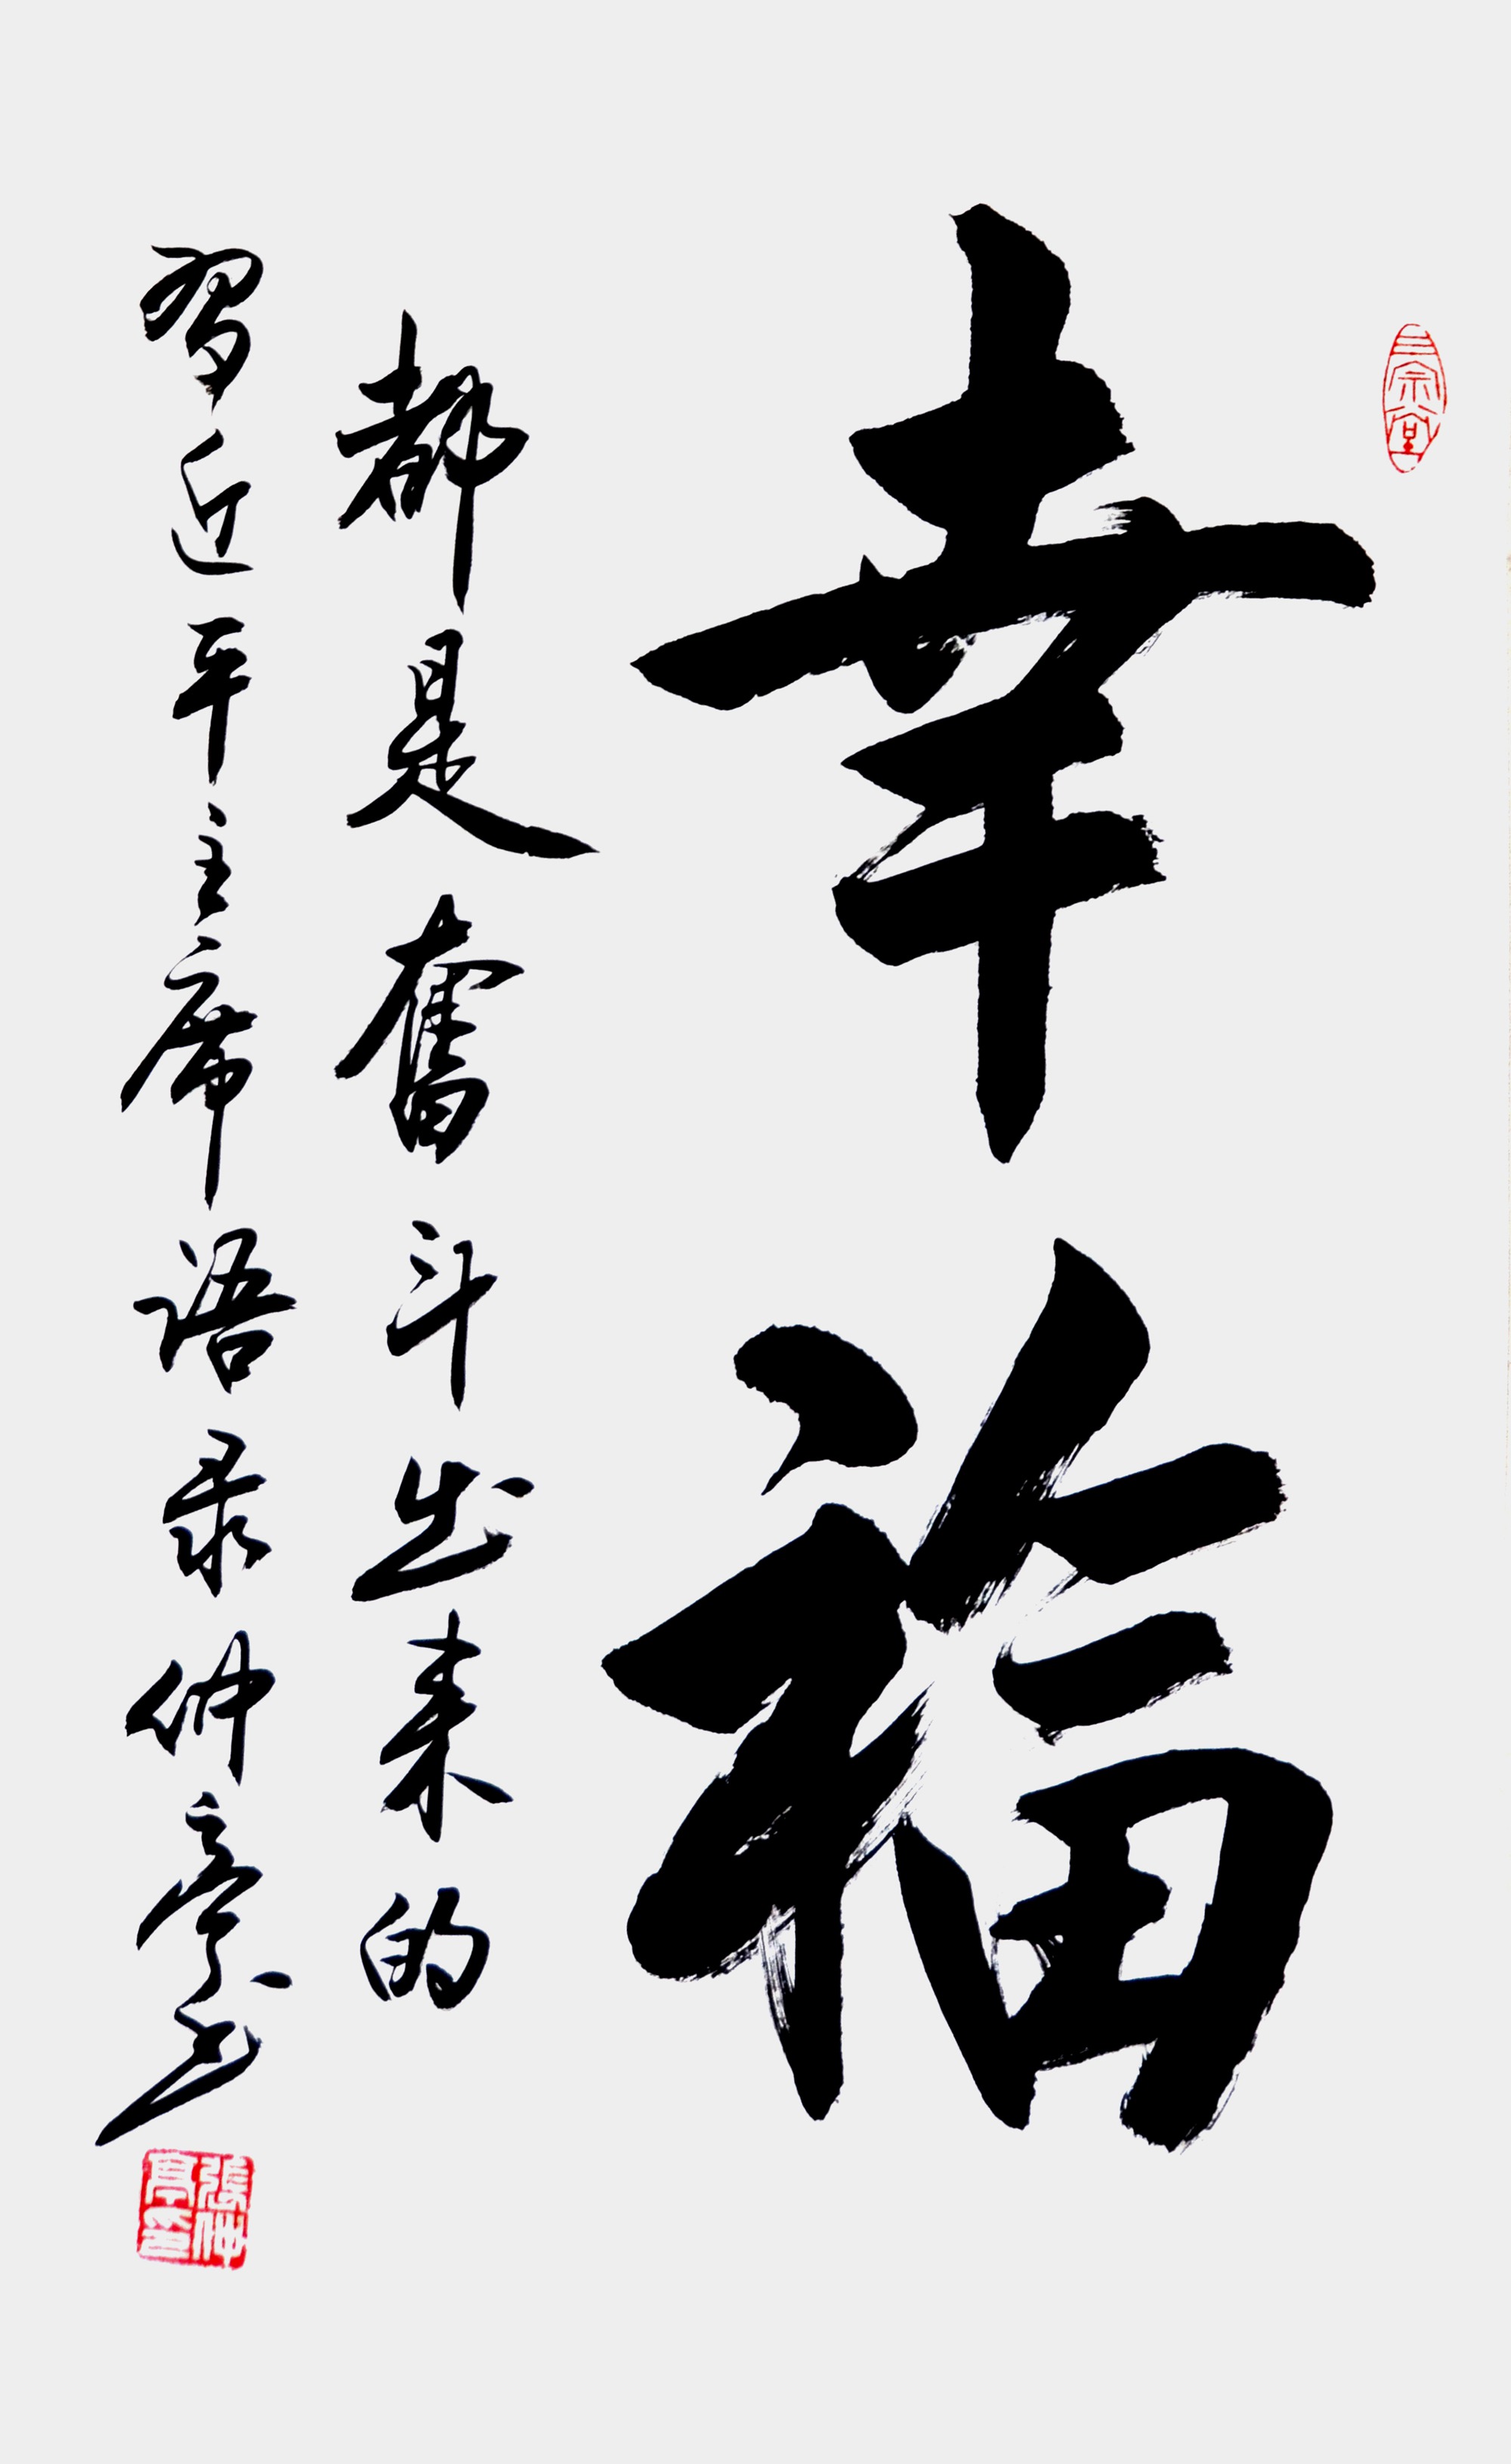 三宗堂
幸福
都是奮斗出来的
習近平主席语录仲亭书
張仲亭